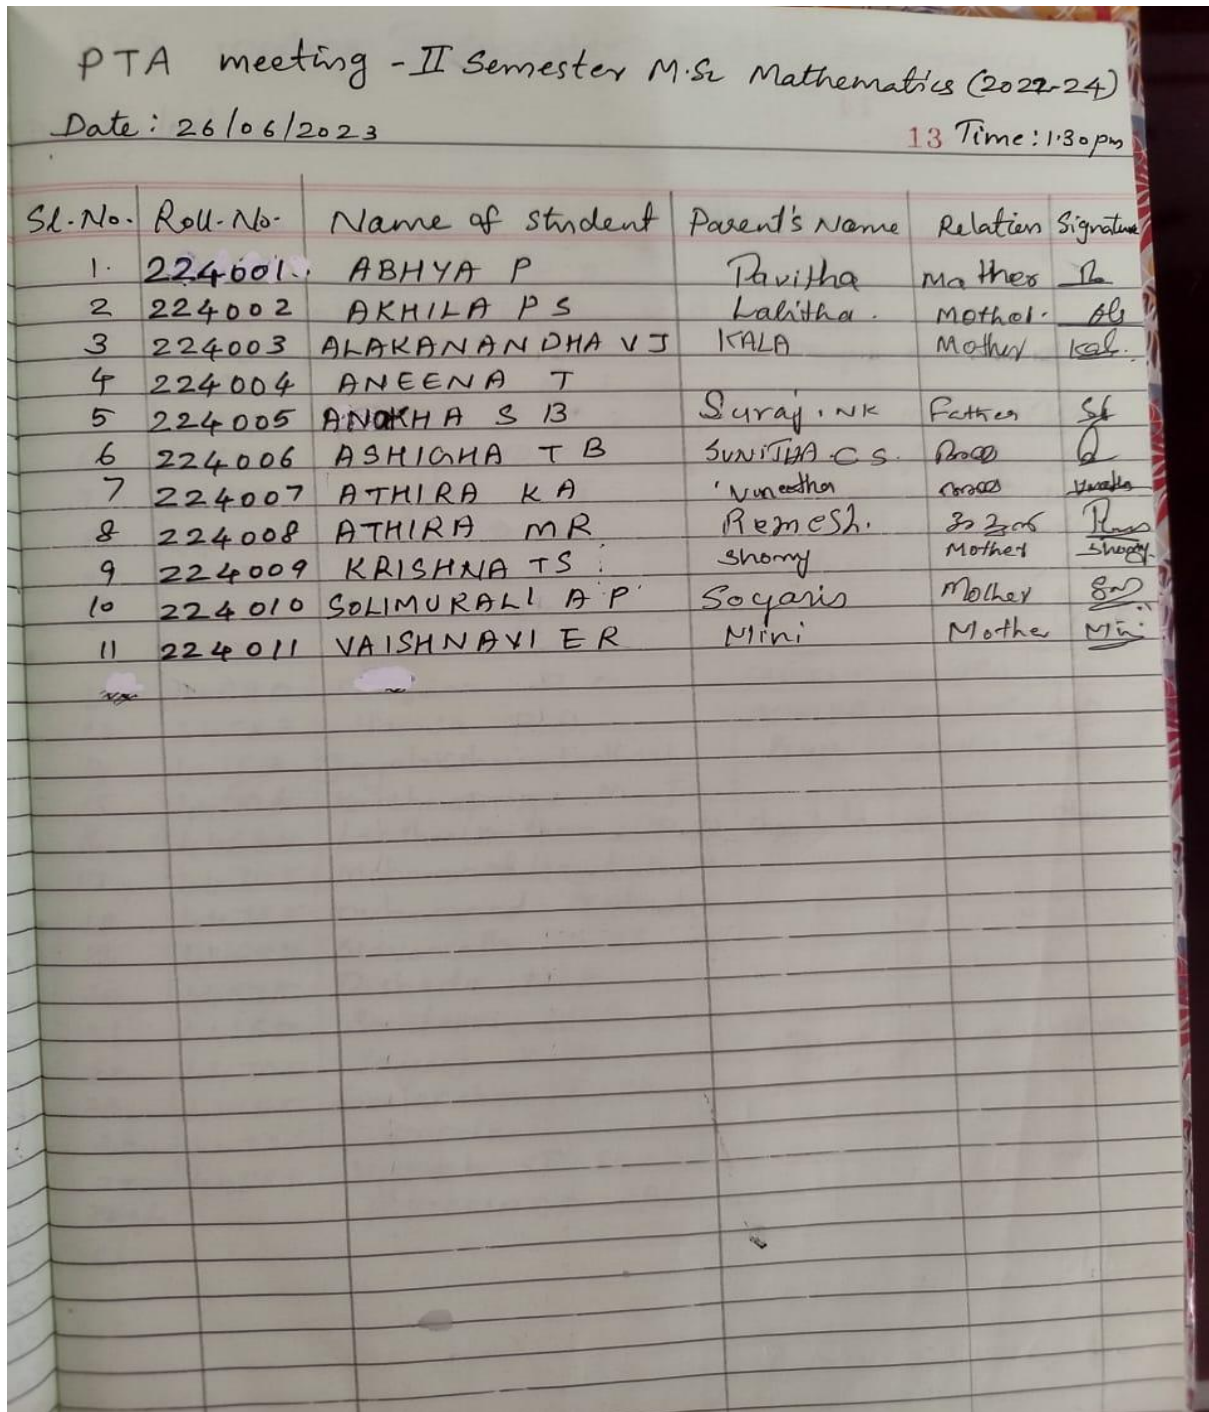 PTA meeting - II Semester M.Sc Mathematics (2022-24)
Date: 26/06/2023 13 Time: 1.30 pm
Sl. No. Roll. No. Name of student Parent's Name Relation Signature
1. 224001 ABHYA P Pavitha Mother
2 224002 AKHILA P S Lalitha. Mother.
3 224003 ALAKANANDHA V J KALA Mother Kala
4 224004 ANEENA T
5 224005 ANOKHA S B Suraj. NK Father
6 224006 ASHIGHA T B SUNITHA. C S.
7 224007 ATHIRA K A
8 224008 ATHIRA M R Remesh.
9 224009 KRISHNA T S Shomy Mother Shomy
10 224010 SOLIMURALI A P Mother
11 224011 VAISHNAVI E R Mini Mother Mini